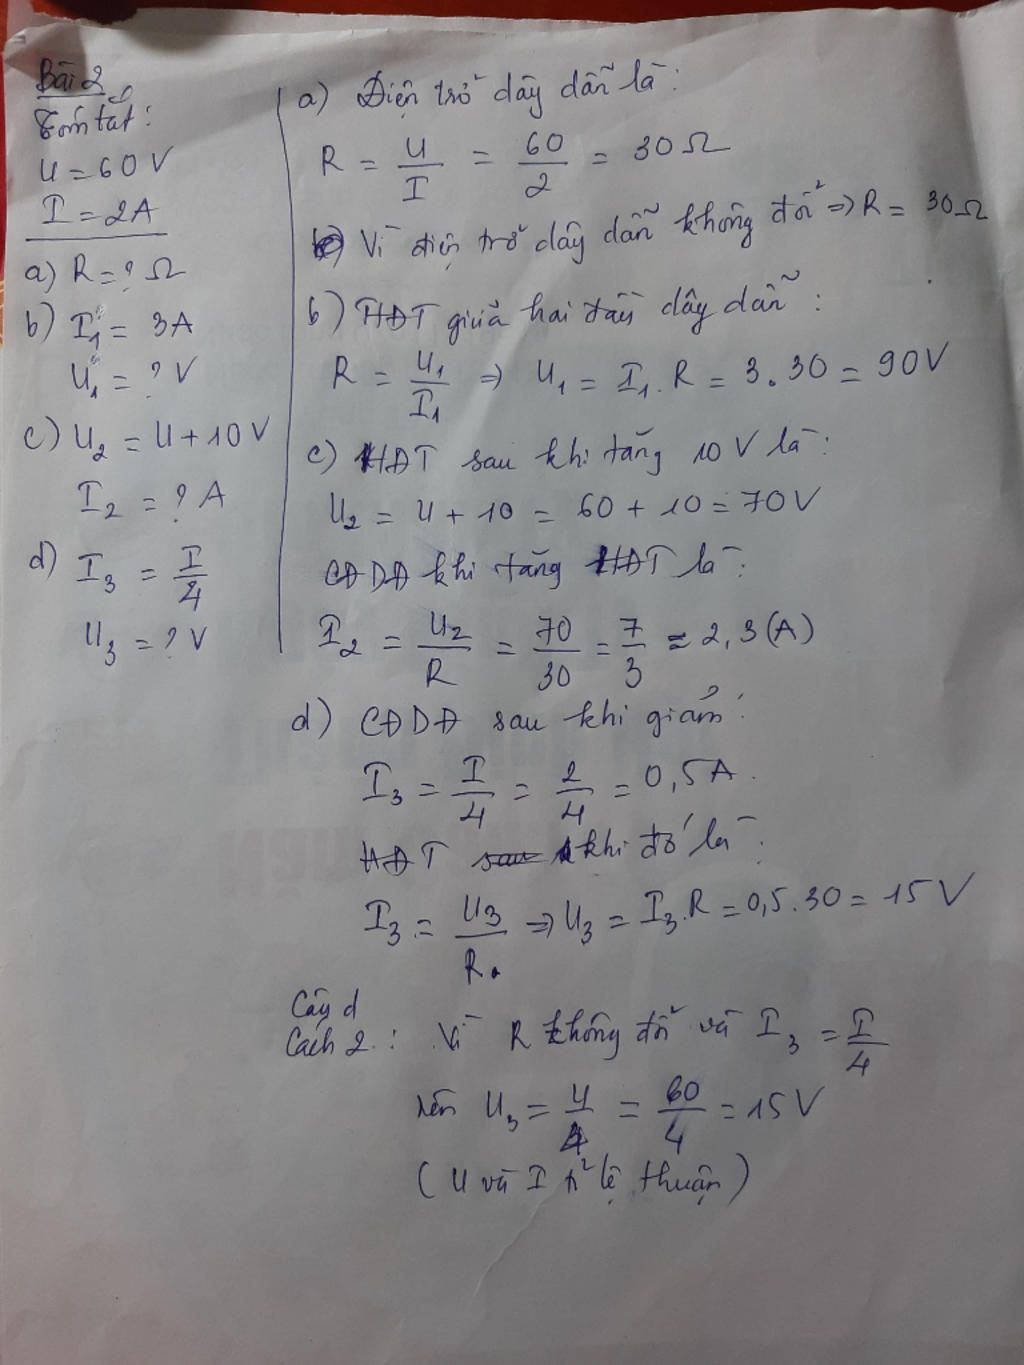 Bài 2
Tóm tắt:
U = 60 V
I = 2A
a) R = ? Ω
b) I₁ = 3A
U₁ = ? V
c) U₂ = U + 10 V
I₂ = ? A
d) I₃ = I/4
U₃ = ? V
a) Điện trở dây dẫn là:
R = U/I = 60/2 = 30 Ω
Vì điện trở dây dẫn không đổi => R = 30 Ω
b) HĐT giữa hai đầu dây dẫn:
R = U₁/I₁ => U₁ = I₁. R = 3.30 = 90V
c) HĐT sau khi tăng 10 V là:
U₂ = U + 10 = 60 + 10 = 70V
CĐDĐ khi tăng HĐT là:
I₂ = U₂/R = 70/30 = 7/3 ≈ 2,3 (A)
d) CĐDĐ sau khi giảm:
I₃ = I/4 = 2/4 = 0,5A.
HĐT khi đó là:
I₃ = U₃/R => U₃ = I₃.R = 0,5.30 = 15 V
Câu d
Cách 2: Vì R không đổi và I₃ = I/4
nên U₃ = U/4 = 60/4 = 15 V
(U và I tỉ lệ thuận)